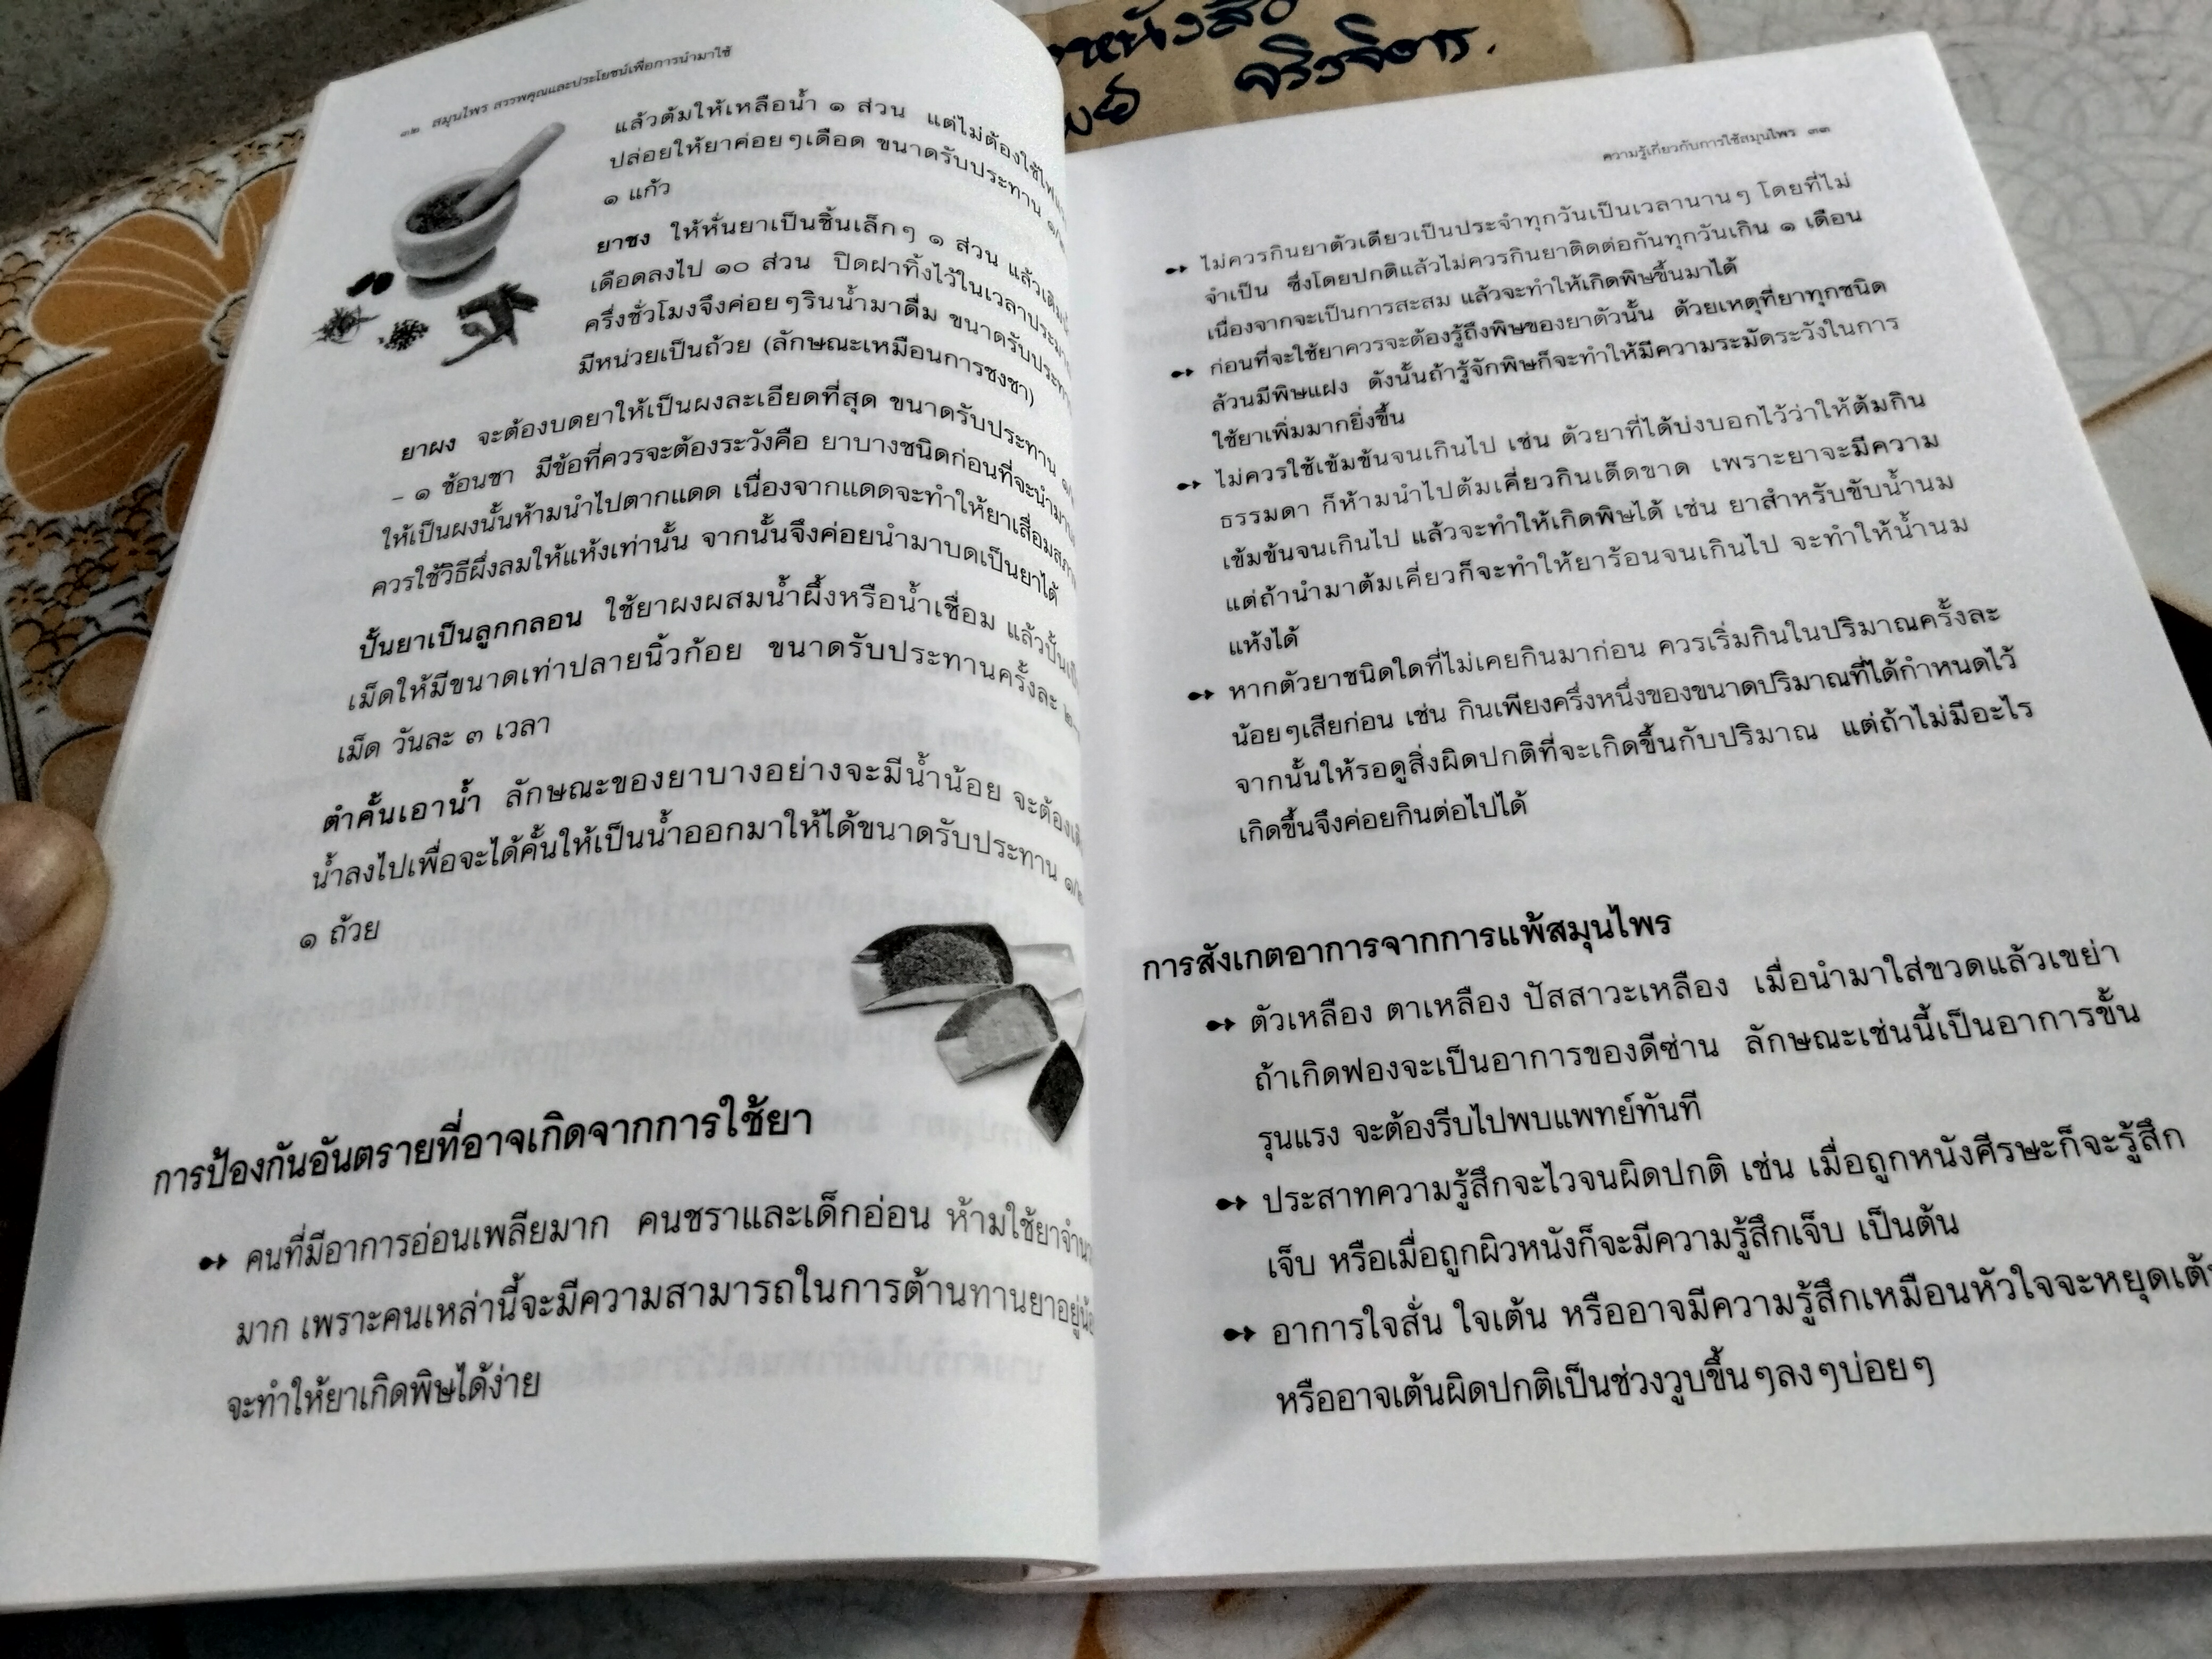 ๓๒ สมุนไพร สรรพคุณและประโยชน์เพื่อการนำมาใช้
แล้วต้มให้เหลือน้ำ ๑ ส่วน แต่ไม่ต้องใช้ไฟ
ปล่อยให้ยาค่อยๆเดือด ขนาดรับประทาน ๑/๒
๑ แก้ว
ยาชง ให้หั่นยาเป็นชิ้นเล็กๆ ๑ ส่วน แล้ว
เดือดลงไป ๑๐ ส่วน ปิดฝาทิ้งไว้ในเวลา
ครึ่งชั่วโมงจึงค่อยๆรินน้ำมาดื่ม ขนาด
มีหน่วยเป็นถ้วย (ลักษณะเหมือนการชงชา)
ยาผง จะต้องบดยาให้เป็นผงละเอียดที่สุด ขนาดรับประทาน
– ๑ ช้อนชา มีข้อที่ควรจะต้องระวังคือ ยาบางชนิดก่อนที่จะนำมา
ให้เป็นผงนั้นห้ามนำไปตากแดด เนื่องจากแดดจะทำให้ยาเสื่อม
ควรใช้วิธีผึ่งลมให้แห้งเท่านั้น จากนั้นจึงค่อยนำมาบดเป็นยาได้
ปั้นยาเป็นลูกกลอน ใช้ยาผงผสมน้ำผึ้งหรือน้ำเชื่อม แล้วปั้น
เม็ดให้มีขนาดเท่าปลายนิ้วก้อย ขนาดรับประทานครั้งละ
เม็ด วันละ ๓ เวลา
ตำคั้นเอาน้ำ ลักษณะของยาบางอย่างจะมีน้ำน้อย จะต้อง
น้ำลงไปเพื่อจะได้คั้นให้เป็นน้ำออกมาให้ได้ขนาดรับประทาน ๑/๒
๑ ถ้วย
การป้องกันอันตรายที่อาจเกิดจากการใช้ยา
➻ คนที่มีอาการอ่อนเพลียมาก คนชราและเด็กอ่อน ห้ามใช้ยา
มาก เพราะคนเหล่านี้จะมีความสามารถในการต้านทานยาอยู่
จะทำให้ยาเกิดพิษได้ง่าย
จริงจิตร.
ความรู้เกี่ยวกับการใช้สมุนไพร ๓๓
➻ ไม่ควรกินยาตัวเดียวเป็นประจำทุกวันเป็นเวลานานๆ โดยที่ไม่
จำเป็น ซึ่งโดยปกติแล้วไม่ควรกินยาติดต่อกันทุกวันเกิน ๑ เดือน
เนื่องจากจะเป็นการสะสม แล้วจะทำให้เกิดพิษขึ้นมาได้
➻ ก่อนที่จะใช้ยาควรจะต้องรู้ถึงพิษของยาตัวนั้น ด้วยเหตุที่ยาทุกชนิด
ล้วนมีพิษแฝง ดังนั้นถ้ารู้จักพิษก็จะทำให้มีความระมัดระวังในการ
ใช้ยาเพิ่มมากยิ่งขึ้น
➻ ไม่ควรใช้เข้มข้นจนเกินไป เช่น ตัวยาที่ได้บ่งบอกไว้ว่าให้ต้มกิน
ธรรมดา ก็ห้ามนำไปต้มเคี่ยวกินเด็ดขาด เพราะยาจะมีความ
เข้มข้นจนเกินไป แล้วจะทำให้เกิดพิษได้ เช่น ยาสำหรับขับน้ำนม
แต่ถ้านำมาต้มเคี่ยวก็จะทำให้ยาร้อนจนเกินไป จะทำให้น้ำนม
แห้งได้
➻ หากตัวยาชนิดใดที่ไม่เคยกินมาก่อน ควรเริ่มกินในปริมาณครั้งละ
น้อยๆเสียก่อน เช่น กินเพียงครึ่งหนึ่งของขนาดปริมาณที่ได้กำหนดไว้
จากนั้นให้รอดูสิ่งผิดปกติที่จะเกิดขึ้นกับปริมาณ แต่ถ้าไม่มีอะไร
เกิดขึ้นจึงค่อยกินต่อไปได้
การสังเกตอาการจากการแพ้สมุนไพร
➻ ตัวเหลือง ตาเหลือง ปัสสาวะเหลือง เมื่อนำมาใส่ขวดแล้วเขย่า
ถ้าเกิดฟองจะเป็นอาการของดีซ่าน ลักษณะเช่นนี้เป็นอาการขั้น
รุนแรง จะต้องรีบไปพบแพทย์ทันที
➻ ประสาทความรู้สึกจะไวจนผิดปกติ เช่น เมื่อถูกหนังศีรษะก็จะรู้สึก
เจ็บ หรือเมื่อถูกผิวหนังก็จะมีความรู้สึกเจ็บ เป็นต้น
➻ อาการใจสั่น ใจเต้น หรืออาจมีความรู้สึกเหมือนหัวใจจะหยุดเต้น
หรืออาจเต้นผิดปกติเป็นช่วงวูบขึ้นๆลงๆบ่อยๆ